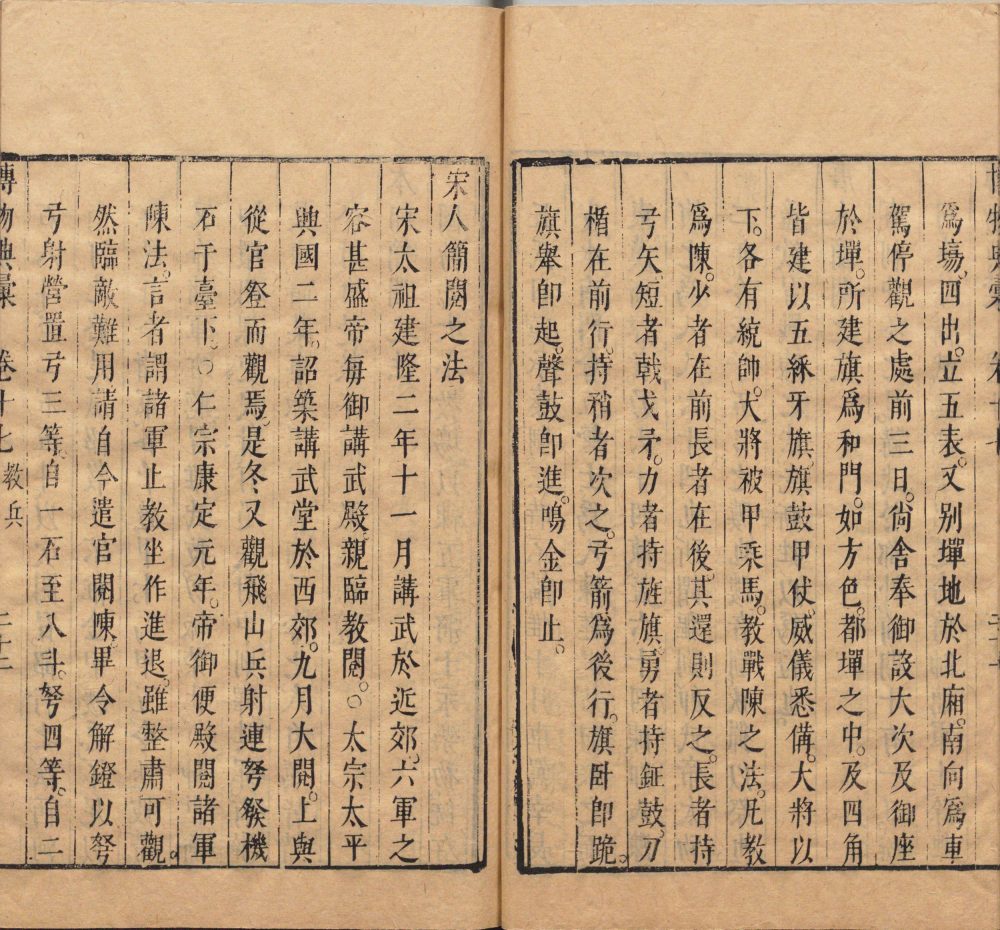 爲場。四出。立五表。又别墠地於北廂。南向爲車
駕停觀之處前三日。尙舍奉御設大次及御座
於墠。所建旗爲和門。如方色。都墠之中。及四角
皆建以五綵牙旗旗鼓甲仗。威儀悉備。大將以
下。各有統帥。大將被甲乘馬。教戰陳之法。凡教
爲陳。少者在前長者在後。其還則反之。長者持
弓矢短者戟戈矛。力者持旌旗。勇者持鉦鼓。刀
楯在前行。持矟者次之。弓箭爲後行。旗卧卽跪。
旗舉卽起。聲鼓卽進。鳴金卽止。
宋人簡閱之法
宋太祖建隆二年十一月講武於近郊。六軍之
容甚盛帝每御講武殿。親臨教閱。○太宗太平
興國二年。詔築講武堂於西郊。九月大閱。上與
從官登而觀焉。是冬又觀飛山兵射連弩發機
石于臺下。○仁宗康定元年。帝御便殿閱諸軍
陳法。言者謂諸軍止教坐作進退。雖整肅可觀。
然臨敵難用請自今遣官閱陳。畢令解鐙以弩
弓射營置弓三等。自一石至八斗。弩四等。自二
博物典彙 卷十七 教兵 二十二